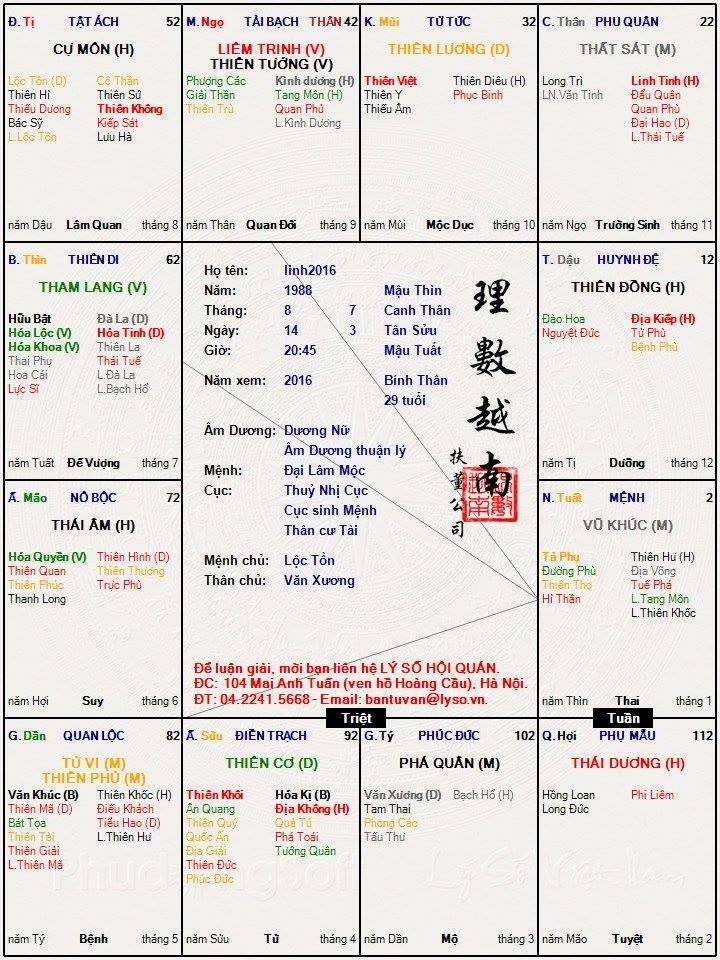 Đ. Tị TẬT ÁCH 52
CỰ MÔN (H)
Lộc Tồn (Đ) Cô Thần
Thiên Hỉ Thiên Sứ
Thiếu Dương Thiên Không
Bác Sỹ Kiếp Sát
L.Lộc Tồn Lưu Hà
năm Dậu Lâm Quan tháng 8
M. Ngọ TÀI BẠCH THÂN 42
LIÊM TRINH (V)
THIÊN TƯỚNG (V)
Phượng Các Kình dương (H)
Giải Thần Tang Môn (H)
Thiên Trù Quan Phủ
L.Kình Dương
năm Thân Quan Đới tháng 9
K. Mùi TỬ TỨC 32
THIÊN LƯƠNG (Đ)
Thiên Việt Thiên Diêu (H)
Thiên Y Phục Binh
Thiếu Âm
năm Mùi Mộc Dục tháng 10
C. Thân PHU QUÂN 22
THẤT SÁT (M)
Long Trì Linh Tinh (H)
LN.Văn Tinh Đẩu Quân
Quan Phủ
Đại Hao (D)
L.Thái Tuế
năm Ngọ Trường Sinh tháng 11
B. Thìn THIÊN DI 62
THAM LANG (V)
Hữu Bật Đà La (D)
Hóa Lộc (V) Hỏa Tinh (D)
Hóa Khoa (V) Thiên La
Thai Phụ Thái Tuế
Hoa Cái L.Đà La
Lực Sĩ L.Bạch Hổ
năm Tuất Đế Vượng tháng 7
Họ tên: linh2016
Năm: 1988 Mậu Thìn
Tháng: 8 7 Canh Thân
Ngày: 14 3 Tân Sửu
Giờ: 20:45 Mậu Tuất
Năm xem: 2016 Bính Thân
29 tuổi
Âm Dương: Dương Nữ
Âm Dương thuận lý
Mệnh: Đại Lâm Mộc
Cục: Thuỷ Nhị Cục
Cục sinh Mệnh
Thân cư Tài
Mệnh chủ: Lộc Tồn
Thân chủ: Văn Xương
理數越南
扶董公司
Để luận giải, mời bạn liên hệ LÝ SỐ HỘI QUÁN.
ĐC: 104 Mai Anh Tuấn (ven hồ Hoàng Cầu), Hà Nội.
ĐT: 04.2241.5668 - Email: bantuvan@lyso.vn.
T. Dậu HUYNH ĐỆ 12
THIÊN ĐỒNG (H)
Đào Hoa Địa Kiếp (H)
Nguyệt Đức Tử Phù
Bệnh Phù
năm Tị Dưỡng tháng 12
Ấ. Mão NÔ BỘC 72
THÁI ÂM (H)
Hóa Quyền (V) Thiên Hình (D)
Thiên Quan Thiên Thương
Thiên Phúc Trực Phù
Thanh Long
năm Hợi Suy tháng 6
N. Tuất MỆNH 2
VŨ KHÚC (M)
Tả Phụ Thiên Hư (H)
Đường Phù Địa Võng
Thiên Thọ Tuế Phá
Hỉ Thần L.Tang Môn
L.Thiên Khốc
năm Thìn Thai tháng 1
Triệt
Tuần
G. Dần QUAN LỘC 82
TỬ VI (M)
THIÊN PHỦ (M)
Văn Khúc (B) Thiên Khốc (H)
Thiên Mã (D) Điếu Khách
Bát Tọa Tiểu Hao (D)
Thiên Tài L.Thiên Hư
Thiên Giải
L.Thiên Mã
năm Tý Bệnh tháng 5
Ấ. Sửu ĐIỀN TRẠCH 92
THIÊN CƠ (D)
Thiên Khôi Hóa Kị (B)
Ân Quang Địa Không (H)
Thiên Quý Quả Tú
Quốc Ấn Phá Toái
Địa Giải Tướng Quân
Thiên Đức
Phúc Đức
năm Sửu Tử tháng 4
G. Tý PHÚC ĐỨC 102
PHÁ QUÂN (M)
Văn Xương (D) Bạch Hổ (H)
Tam Thai
Phong Cáo
Tấu Thư
năm Dần Mộ tháng 3
Q. Hợi PHỤ MẪU 112
THÁI DƯƠNG (H)
Hồng Loan Phi Liêm
Long Đức
năm Mão Tuyệt tháng 2